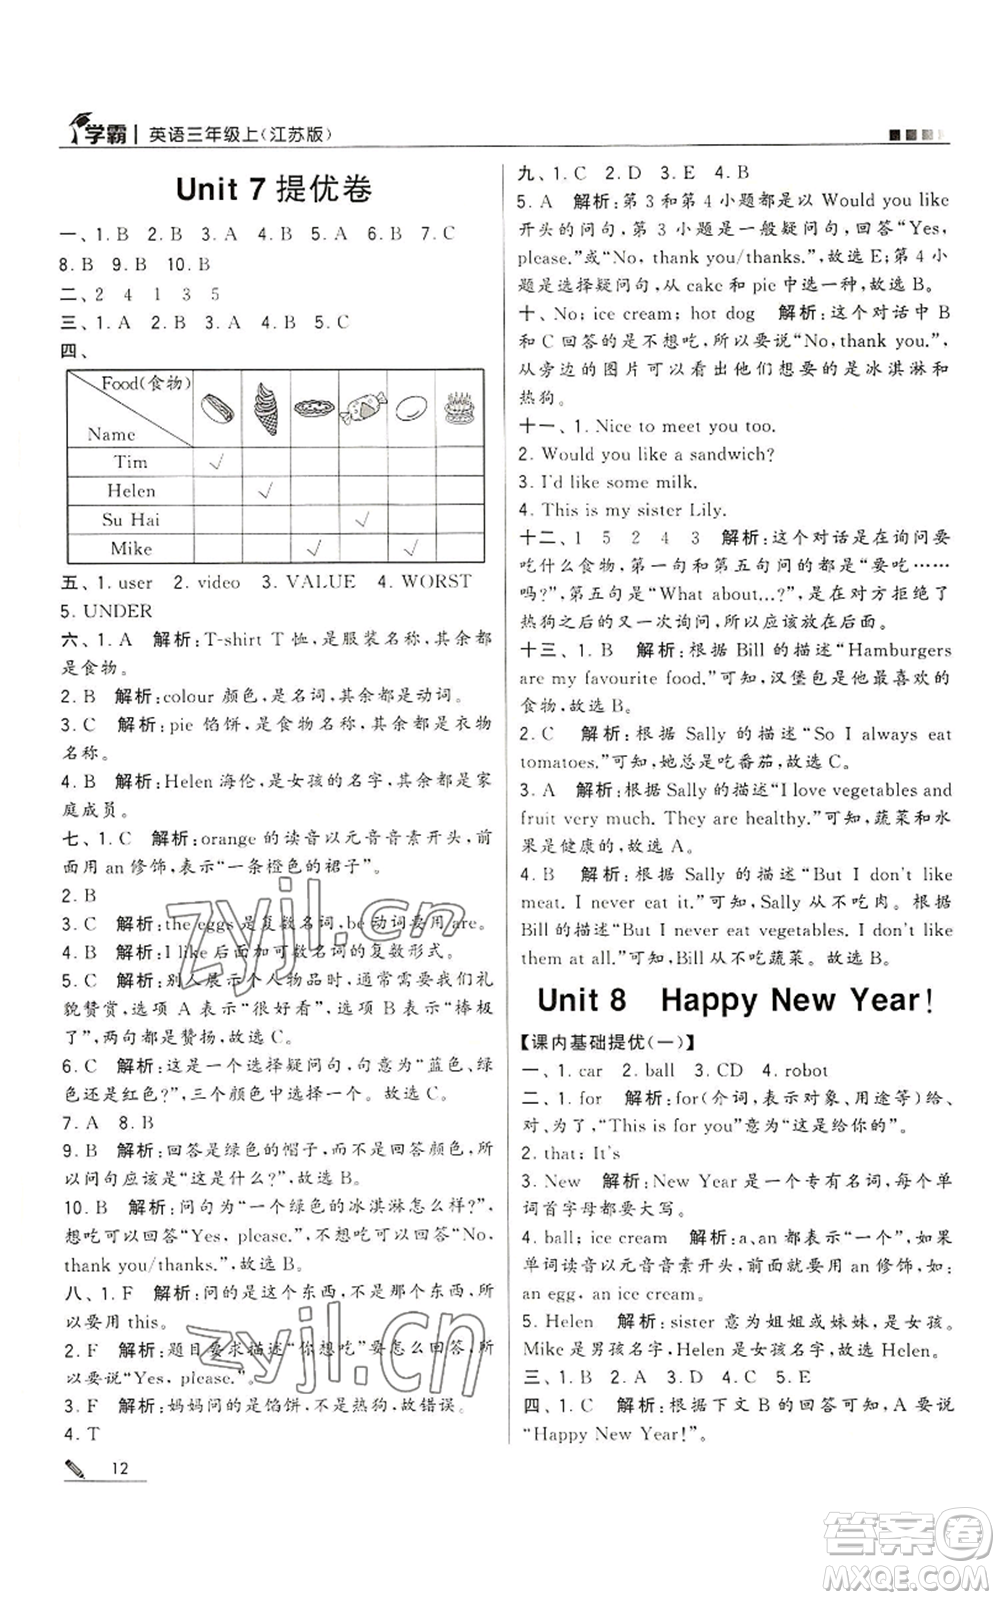 学霸 | 英语三年级上(江苏版)
Unit 7 提优卷
一、1. B 2. B 3. A 4. B 5. A 6. B 7. C
8. B 9. B 10. B
二、2 4 1 3 5
三、1. A 2. B 3. A 4. B 5. C
四、
Food(食物)
Name
Tim √
Helen √
Su Hai √
Mike √ √
五、1. user 2. video 3. VALUE 4. WORST
5. UNDER
六、1. A 解析:T-shirt T 恤,是服装名称,其余都
是食物。
2. B 解析:colour 颜色,是名词,其余都是动词。
3. C 解析:pie 馅饼,是食物名称,其余都是衣物
名称。
4. B 解析:Helen 海伦,是女孩的名字,其余都是家
庭成员。
七、1. C 解析:orange 的读音以元音音素开头,前
面用 an 修饰,表示“一条橙色的裙子”。
2. B
3. C 解析:the eggs 是复数名词,be 动词要用 are。
4. B 解析:I like 后面加可数名词的复数形式。
5. C 解析:别人展示个人物品时,通常需要我们礼
貌赞赏,选项 A 表示“很好看”,选项 B 表示“棒极
了”,两句都是赞扬,故选 C。
6. C 解析:这是一个选择疑问句,“它是蓝色、绿
色还是红色?”选项 C 表示“它是绿色”。故选 C。
7. A 8. B
9. B 解析:回答是绿色的帽子,而不是回答颜色,所
以问句应该是“这是什么?”,故选 B。
10. B 解析:问句为“一个绿色的冰淇淋怎么样?”,
想吃可以回答“Yes, please.”,不想吃可以回答“No,
thank you/thanks.”,故选 B。
八、1. F 解析:问的是这个东西,不是那个东西,所
以要用 this。
2. F 解析:题目要求描述“你想吃”要怎么回答,所
以要说“Yes, please.”。
3. F 解析:妈妈问的是馅饼,不是热狗,故错误。
4. T
12
九、1. C 2. D 3. E 4. B
5. A 解析:第 3 和第 4 小题都是以 Would you like
开头的问句,第 3 小题是一般疑问句,回答“Yes,
please.”或“No, thank you/thanks.”,故选 E;第 4 小
题是选择疑问句,从 cake 和 pie 中选一种,故选 B。
十、No; ice cream; hot dog 解析:这个对话中 B
和 C 回答的是不想吃,所以要说“No, thank you.”,
从旁边的图片可以看出他们想要的是冰淇淋和
热狗。
十一、1. Nice to meet you too.
2. Would you like a sandwich?
3. I'd like some milk.
4. This is my sister Lily.
十二、1 5 2 4 3 解析:这个对话是在询问要
吃什么食物,第一句和第五句问的都是“要吃……
吗?”,第五句是“What about...?”,是在对方拒绝了
热狗之后的又一次询问,所以应该放在后面。
十三、1. B 解析:根据 Bill 的描述“Hamburgers
are my favourite food.”可知,汉堡包是他最喜欢的
食物,故选 B。
2. C 解析:根据 Sally 的描述“So I always eat
tomatoes.”可知,她总是吃番茄,故选 C。
3. A 解析:根据 Sally 的描述“I love vegetables and
fruit very much. They are healthy.”可知,蔬菜和水
果是健康的,故选 A。
4. B 解析:根据 Sally 的描述“But I don't like
meat. I never eat it.”可知,Sally 从不吃肉。根据
Bill 的描述“But I never eat vegetables. I don't like
them at all.”可知,Bill 从不吃蔬菜。故选 B。
Unit 8 Happy New Year!
【课内基础提优(一)】
一、1. car 2. ball 3. CD 4. robot
二、1. for 解析:for(介词,表示对象、用途等)给、
对、为了,“This is for you”意为“这是给你的”。
2. that; It's
3. New 解析:New Year 是一个专有名词,每个单
词首字母都要大写。
4. ball; ice cream 解析:a、an 都表示“一个”,如果
单词读音以元音音素开头,要用 an 修饰,如:
an egg, an ice cream。
5. Helen 解析:sister 意为姐姐或妹妹,是女孩。
Mike 是男孩名字,Helen 是女孩名字,故选 Helen。
三、1. B 2. D 3. A 4. C 5. E
四、1. C 解析:根据下文 B 的回答可知,A 要说
“Happy New Year!”。
zyjl.cn
zyjl.cn
答案卷
MXQE.COM